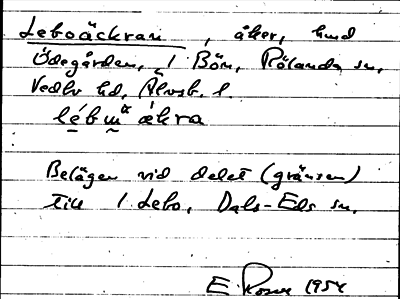 Leboäckran, åker, hmd
Ödegården, 1 Bön, Rölanda sn,
Vedbo hd, Älvsb. l.
Belägen vid delet (gränsen)
till 1 Lebo, Dals-Eds sn.
E. Rosne 1954